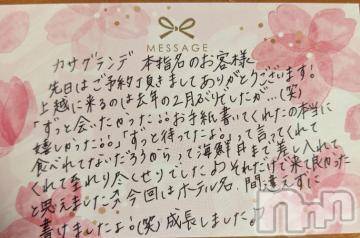 MESSAGE
カサグランデ 本指名のお客様
先日はご予約頂きましてありがとうございます!
上越に来るのは去年の2月ぶりでしたが…(笑)
「ずっと会いたかった。。お手紙書いてくれたの本当に
嬉しかった。。」「ずっと待ってたよ。」って言ってくれて
食べれてないだろうから、って海鮮丼まで差し入れて
くれて至れり尽くせりでした♪それだけで来て良かった
と思えました↗今回はホテル名、間違えずに
書けましたよ!(笑)成長しました♪